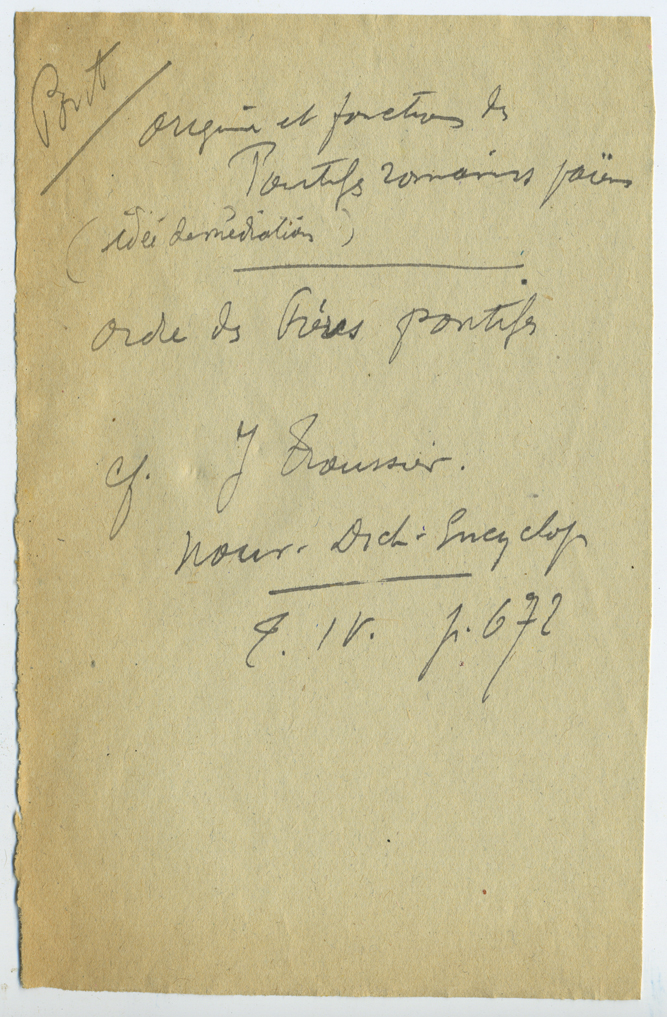 origine et fonctions des
Pontifes romains païens
(idée de médiation)
ordre des Frères pontifes
cf. J Trousset.
Nouv. Dict. Encyclop
T. IV. p. 672